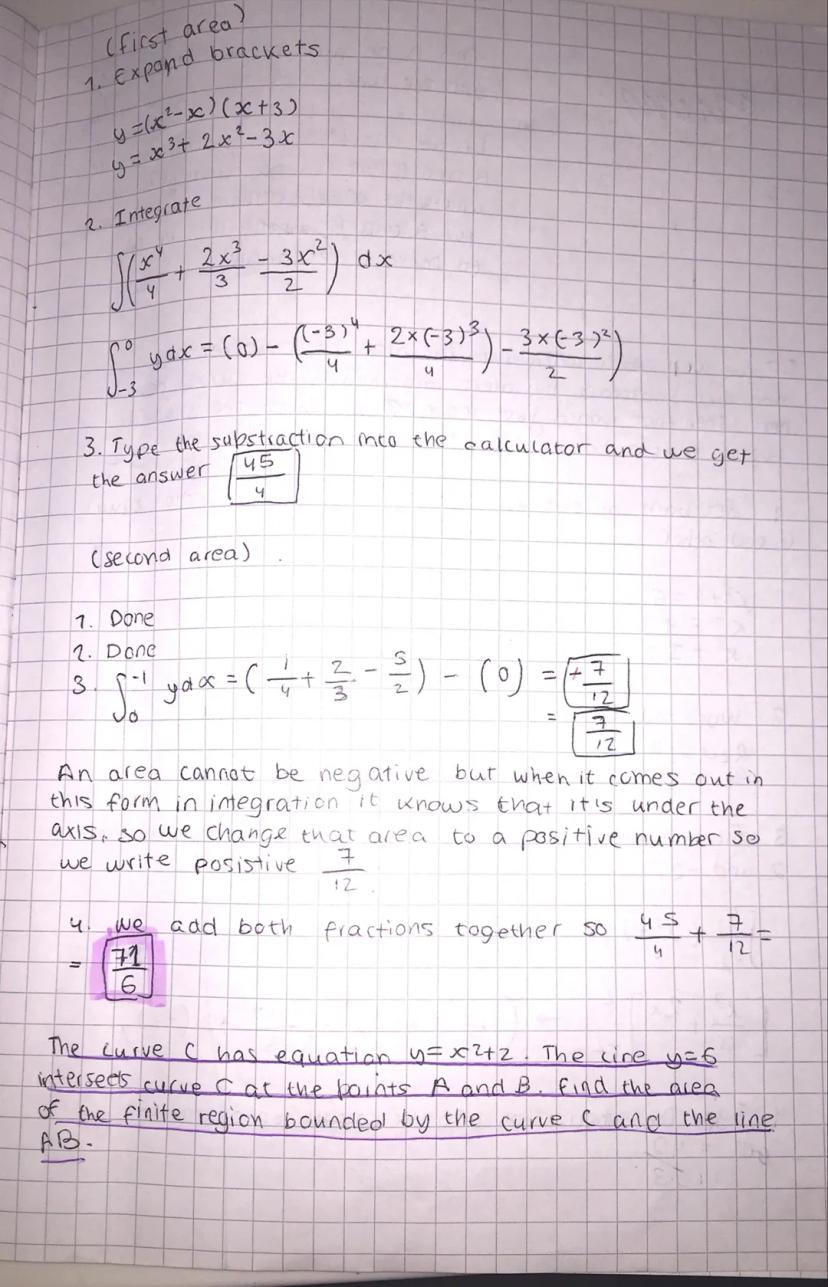 (first area)
1. Expand brackets
y=(x²-x)(x+3)
y= x³+ 2x²-3x
2. Integrate
∫(x⁴/4 + 2x³/3 - 3x²/2) dx
∫₋₃⁰ ydx = (0) - ((-3)⁴/4 + 2×(-3)³/4) - 3×(-3)²/2)
3. Type the substraction into the calculator and we get
the answer 45/4
(second area) .
1. Done
2. Done
3. ∫₀⁻¹ ydx = (1/4 + 2/3 - 5/2) - (0) = + 7/12
= 7/12
An area cannot be negative but when it comes out in
this form in integration it knows that it's under the
axis, so we change that area to a positive number so
we write posistive 7/12.
4. we add both fractions together so 45/4 + 7/12 =
= 71/6
The curve C has equation y=x²+2. The line y=6
intersects curve C at the points A and B. Find the area
of the finite region bounded by the curve C and the line
AB.